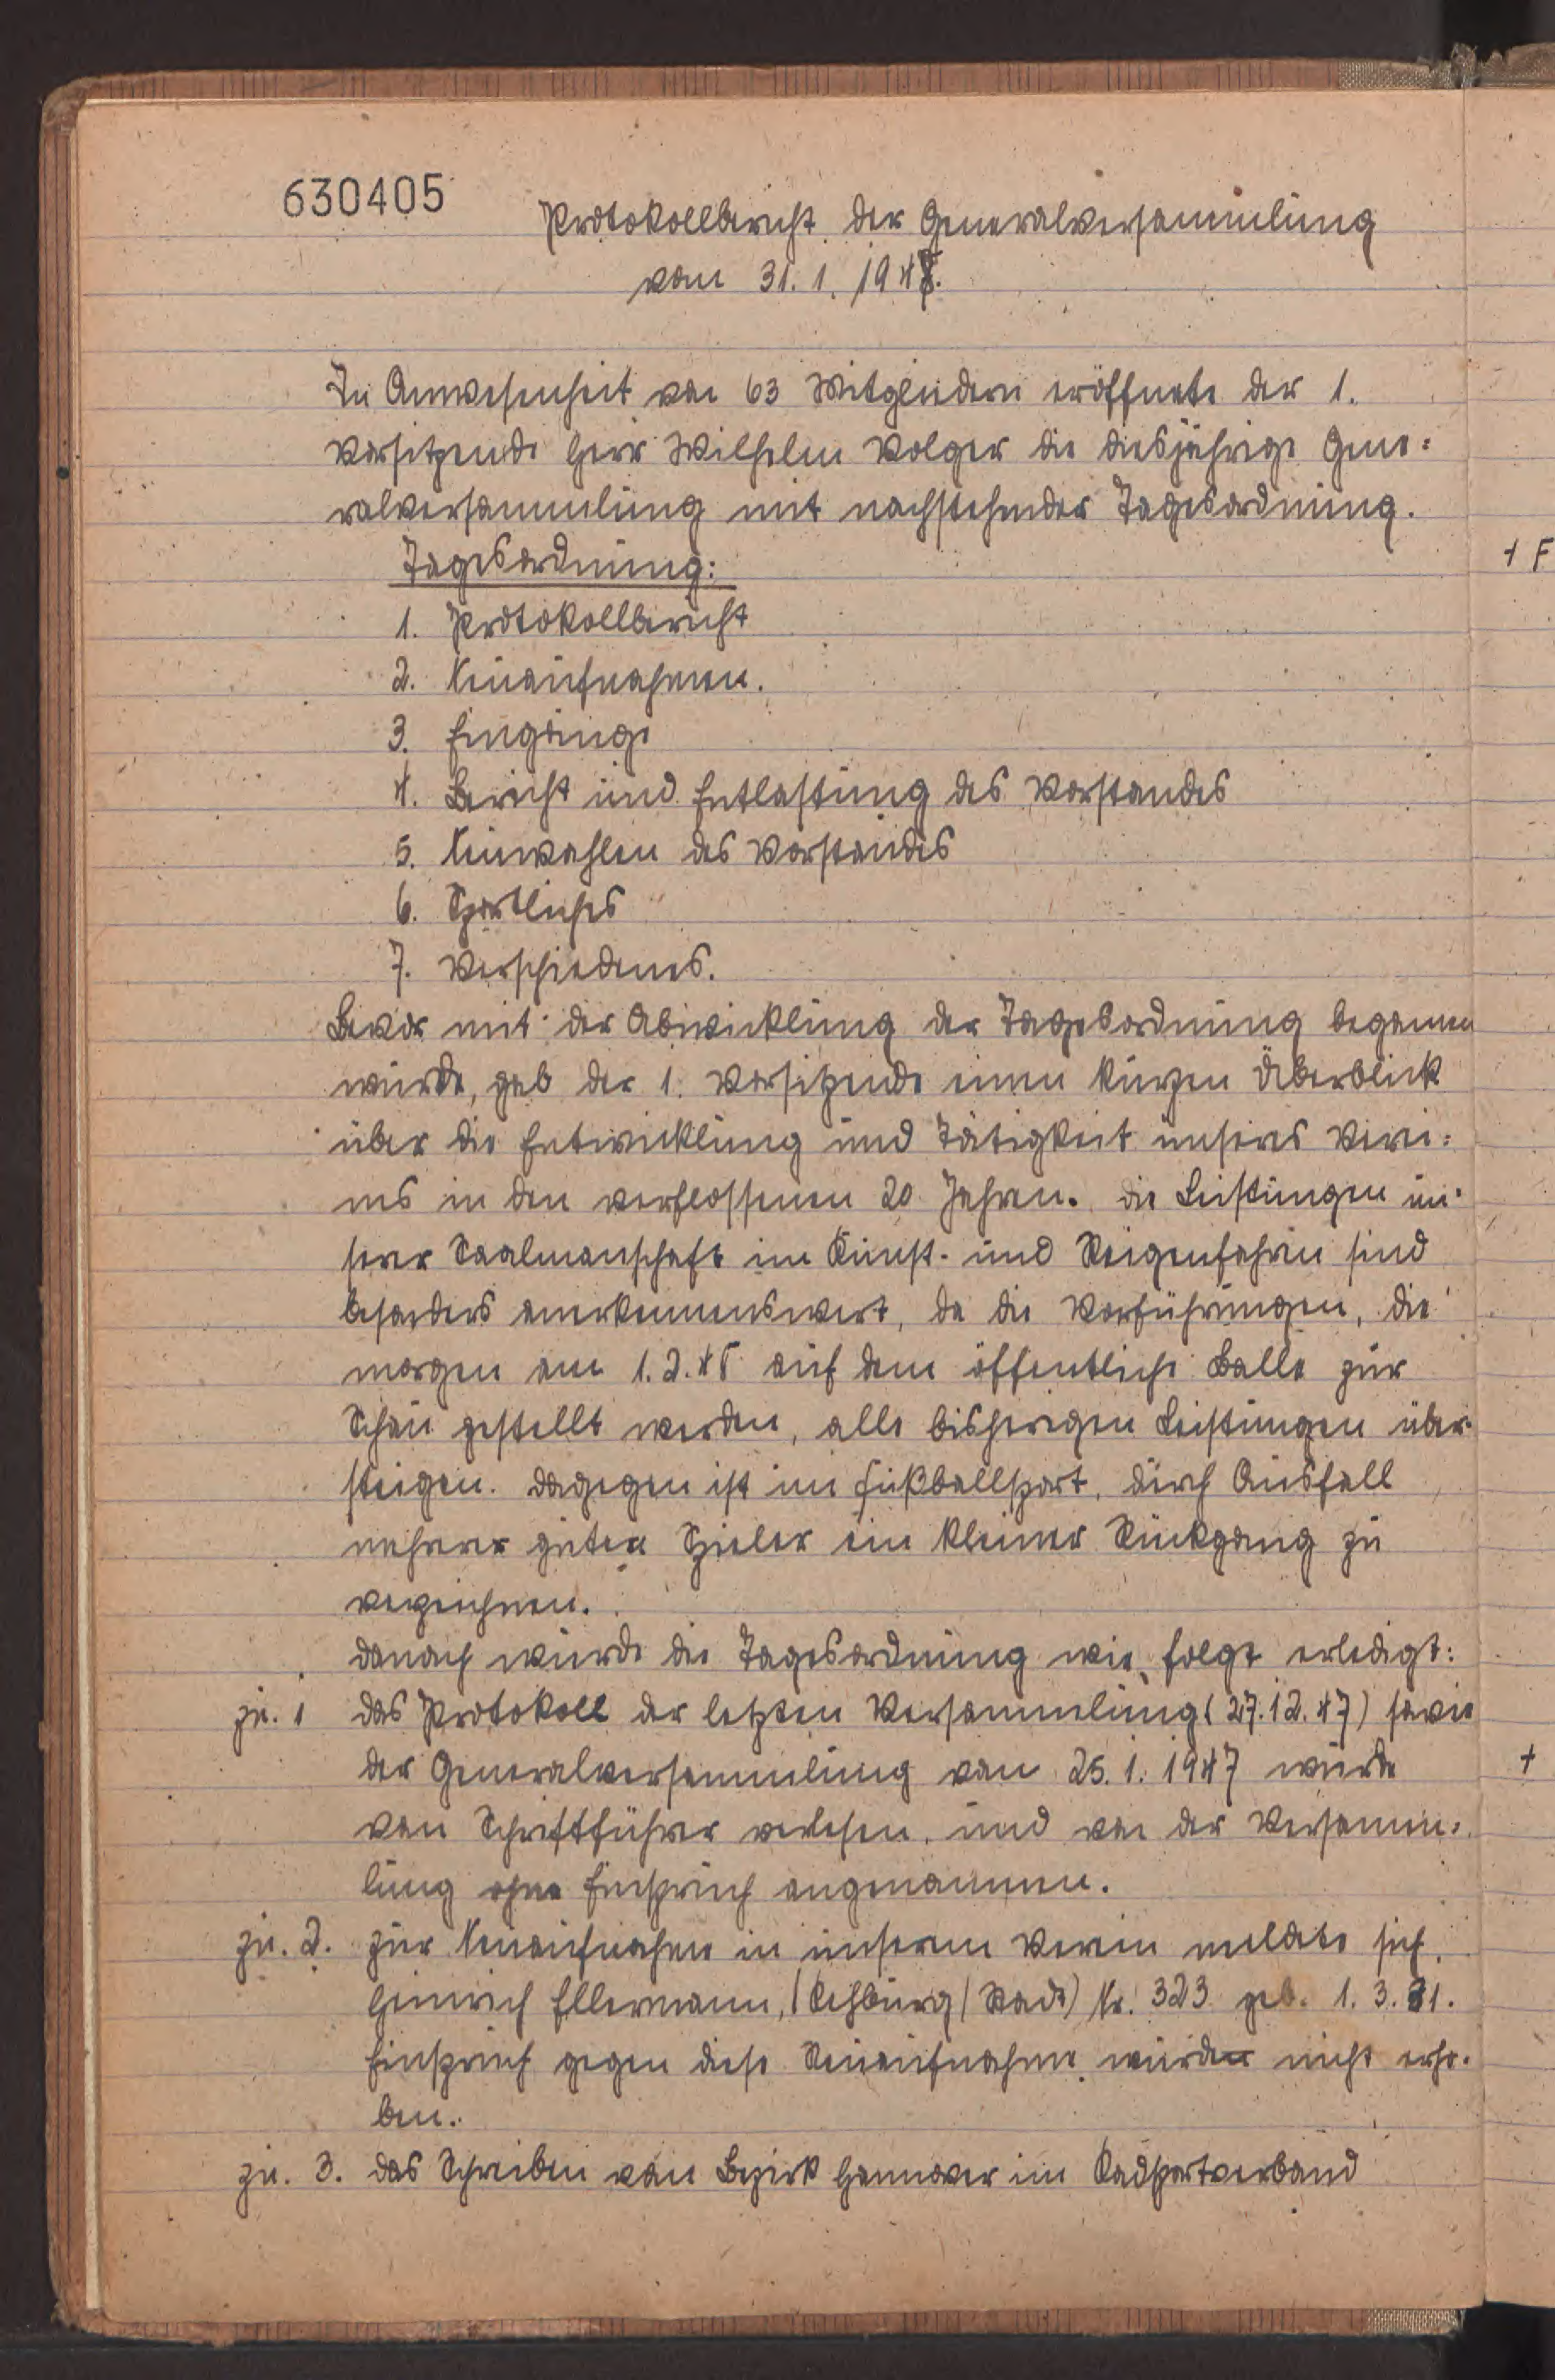 630405
Protokollbericht der Generalversammlung
vom 31. 1. 1948.
In Anwesenheit von 63 Mitgliedern eröffnete der 1.
Vorsitzende Herr Wilhelm Volger die diesjährige Gene=
ralversammlung mit nachstehender Tagesordnung.
Tagesordnung:
1. Protokollbericht
2. Neuaufnahmen.
3. Eingänge
4. Bericht und Entlastung des Vorstandes
5. Neuwahlen des Vorstandes
6. Sportliches
7. Verschiedenes.
Bevor mit der Abwicklung der Tagesordnung begonnen
wurde, gab der 1. Vorsitzende einen kurzen Überblick
über die Entwicklung und Tätigkeit unseres Verei=
nes in den verflossenen 20 Jahren. Die Leistungen un-
serer Saalmanschaft im Kunst- und Reigenfahren sind
besonders anerkennenswert, da die Vorführungen, die
morgen am 1.2.48 auf dem öffentliche Balle zur
Schau gestellt werden, alle bisherigen Leistungen über-
steigen. Dagegen ist im Fußballsport, durch Ausfall
mehrer guter Spieler ein kleiner Rückgang zu
verzeichnen.
Danach wurde die Tagesordnung wie folgt erledigt:
zu. 1 Das Protokoll der letzten Versammlung (27.12.47) sowie
der Generalversammlung vom 25. 1. 1947 wurde
von Schriftführer verlesen, und von der Versamm=
lung ohne Einspruch angenommen.
zu. 2. Zur Neuaufnahme in unserem Verein meldete sich,
Heinrich Ellermann, (Rehburg (Stadt) Nr. 323 geb. 1. 3. 31.
Einspruch gegen diese Neuaufnahme wurden nicht erho-
ben.
zu. 3. Das Schreiben vom Bezirk Hannover im Radsportverband
+ F
+